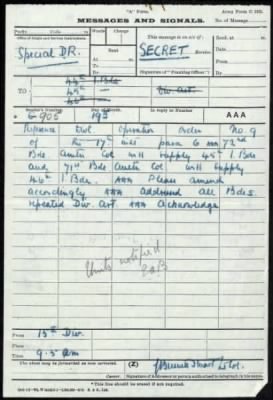 "A" Form.
Army Form C 2121.
MESSAGES AND SIGNALS.
No. of Message
Prefix Code
Words
Charge
This message is on a/c of:
Office of Origin and Service Instructions.
Special DR.
Sent
At
To
By
SECRET
Service.
(Signature of "Franking Officer")
TO
44th I. Bde
45th
46th
Div Art.
Sender's Number.
Day of Month.
In reply to Number
AAA
G 905
19th
Reference Operation Order No. 9
of 17th para 6 AAA 72nd
Bde Amtn Col will supply 45th I. Bde
and 71st Bde Amtn Col will supply
46th I. Bde. AAA Please amend
accordingly AAA addressed all Bdes.
repeated Div. Art. AAA Acknowledge
Units notified
From
15th Div.
Place
Time
9.5 am
The above may be forwarded as now corrected.
(Z)
Lt Col.
Censor.
Signature of Addressor or person authorised to telegraph in his name.
* This line should be erased if not required.